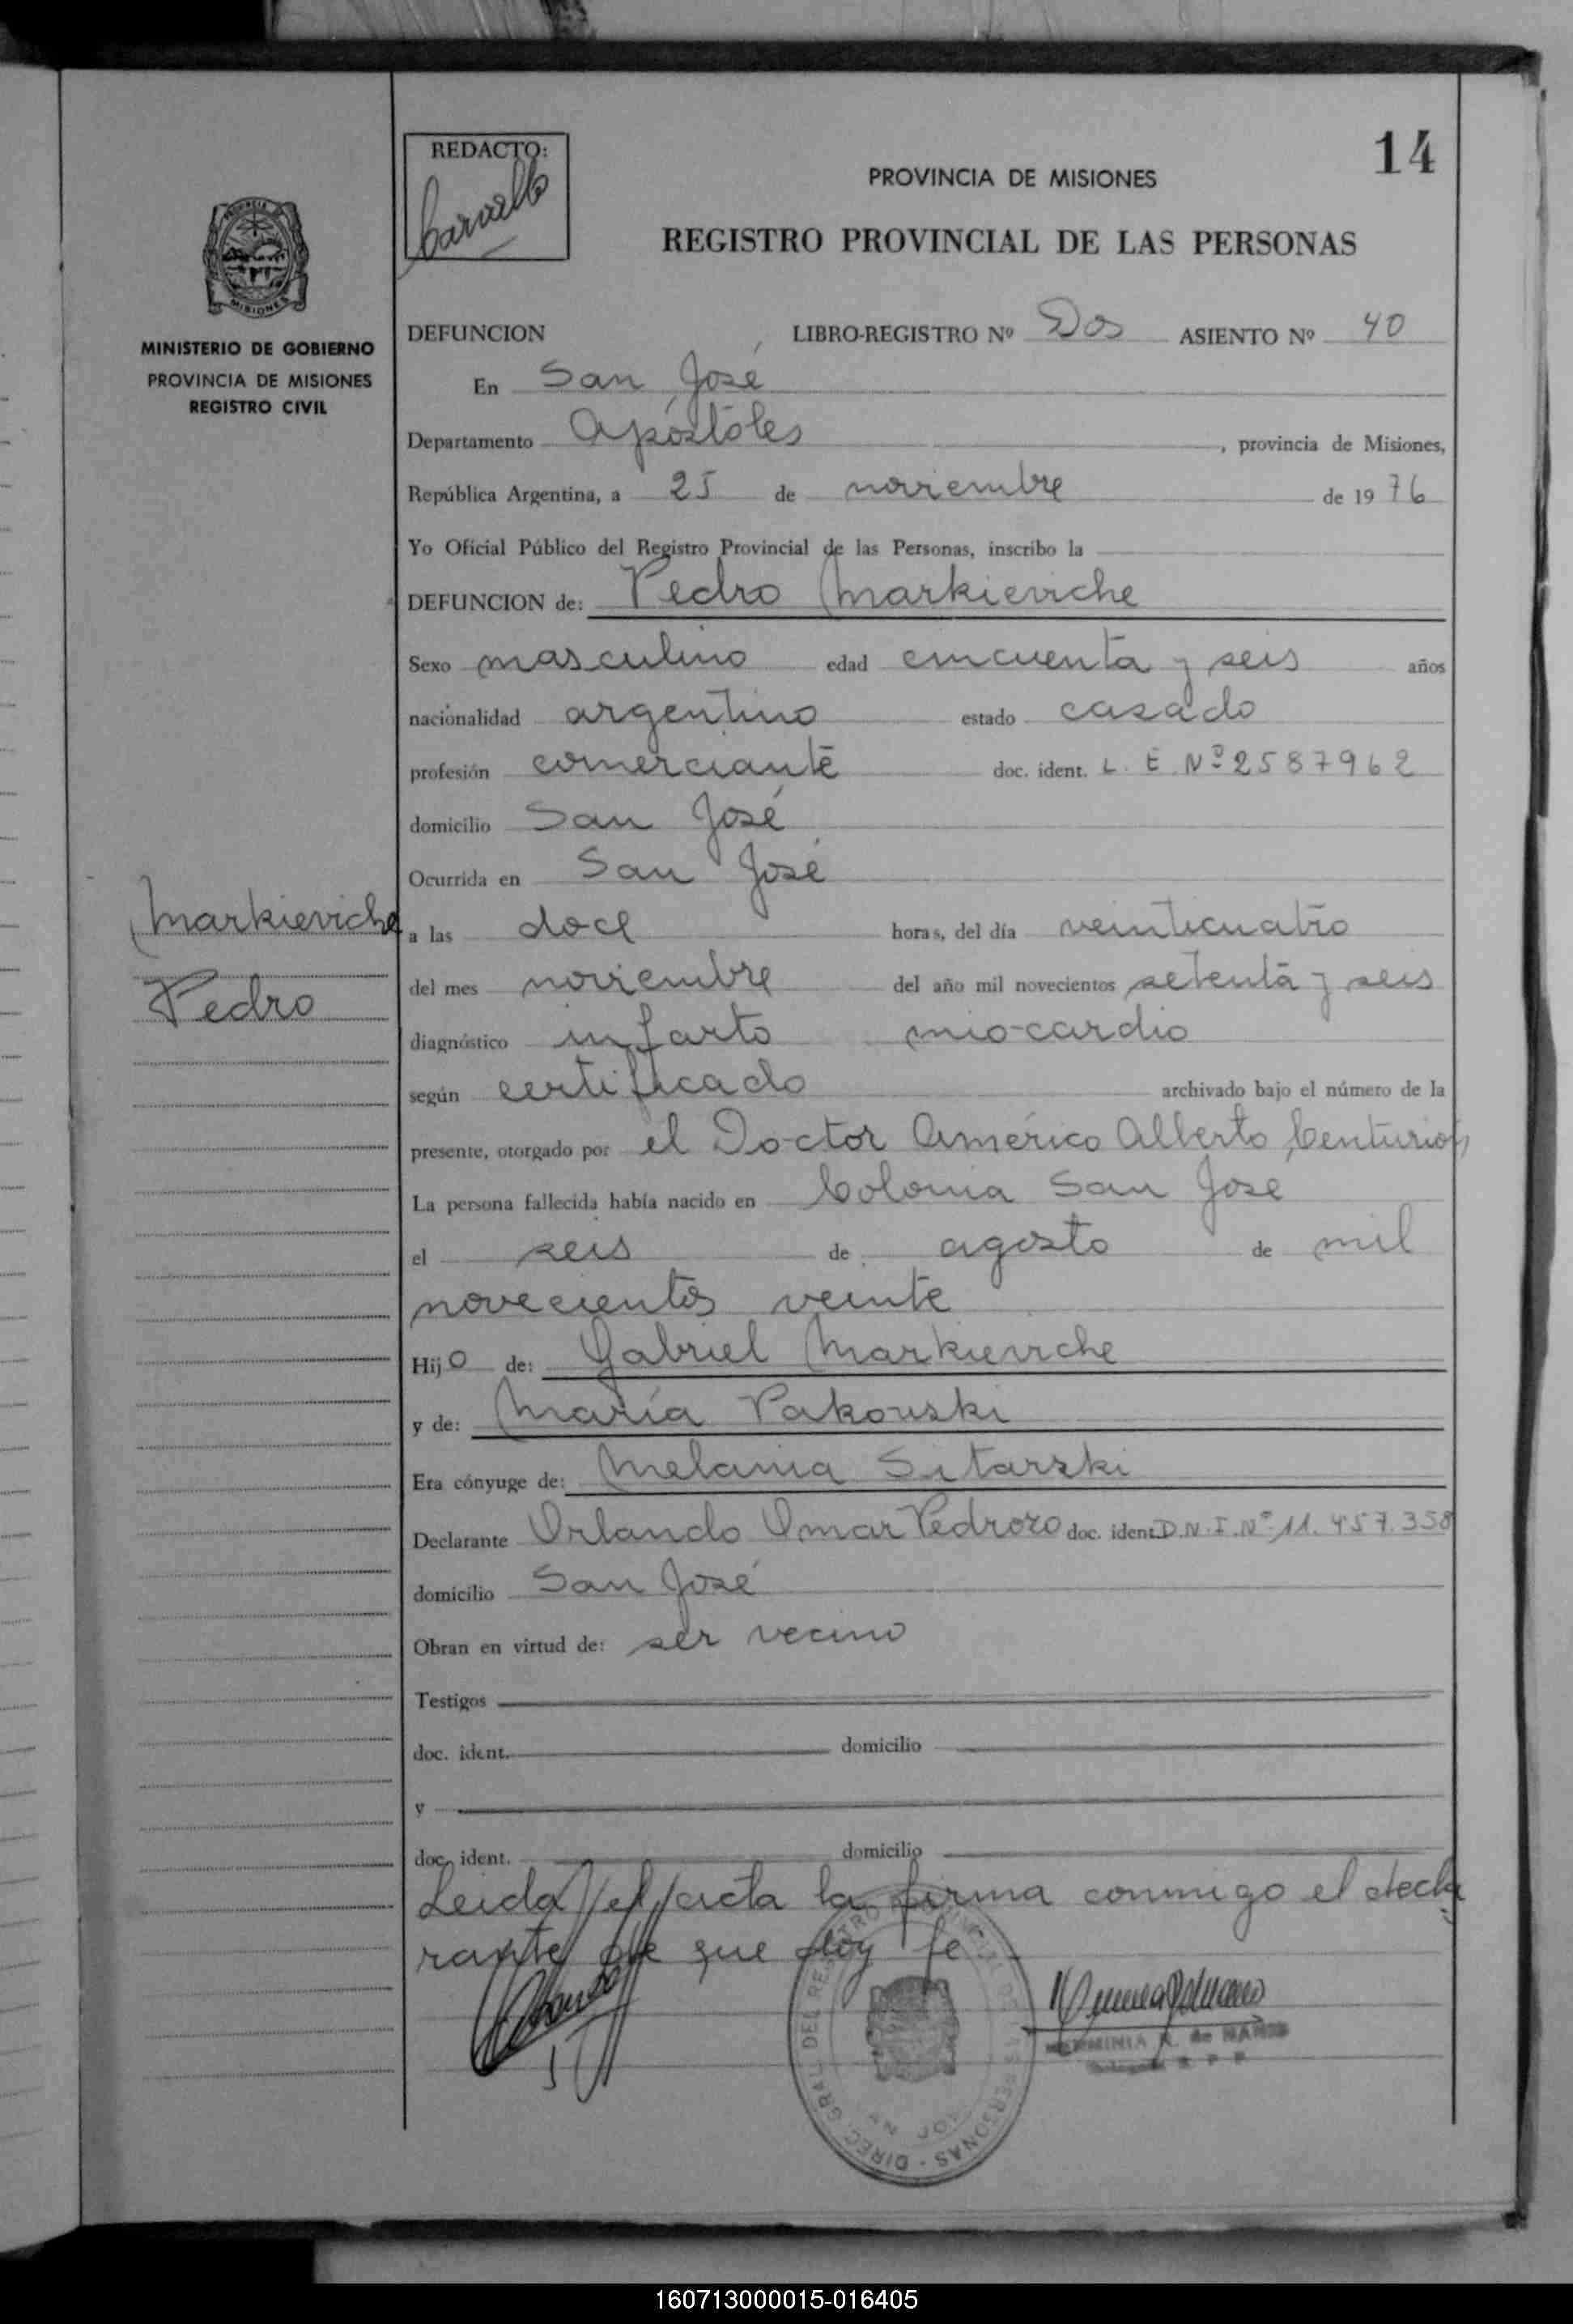 14
REDACTO:
Carvallo
PROVINCIA DE MISIONES
REGISTRO PROVINCIAL DE LAS PERSONAS
PROVINCIA DE
MISIONES
MINISTERIO DE GOBIERNO
PROVINCIA DE MISIONES
REGISTRO CIVIL
DEFUNCION LIBRO-REGISTRO Nº Dos ASIENTO Nº 40
En San José
Departamento Apóstoles, provincia de Misiones,
República Argentina, a 25 de noviembre de 1976
Yo Oficial Público del Registro Provincial de las Personas, inscribo la
DEFUNCION de: Pedro Markieviche
Sexo masculino edad cincuenta y seis años
nacionalidad argentino estado casado
profesión comerciante doc. ident. L. E. Nº 2587962
domicilio San José
Ocurrida en San José
Markieviche
Pedro
a las doce horas, del día veinticuatro
del mes noviembre del año mil novecientos setenta y seis
diagnóstico infarto mio-cardio
según certificado archivado bajo el número de la
presente, otorgado por el Doctor Américo Alberto Centurion
La persona fallecida había nacido en Colonia San José
el seis de agosto de mil
novecientos veinte
Hijo de: Gabriel Markieviche
y de: María Pakouski
Era cónyuge de: Melania Sitarski
Declarante Orlando Omar Pedrozo doc. ident. D.N.I. Nº 11.457.358
domicilio San José
Obran en virtud de: ser vecino
Testigos
doc. ident. domicilio
y
doc. ident. domicilio
Leida el acta la firma conmigo el decla
rante de que doy fe
DIREC. GRAL DEL REGISTRO PROVINCIAL DE LAS PERSONAS
HERMINIA R. de
160713000015-016405